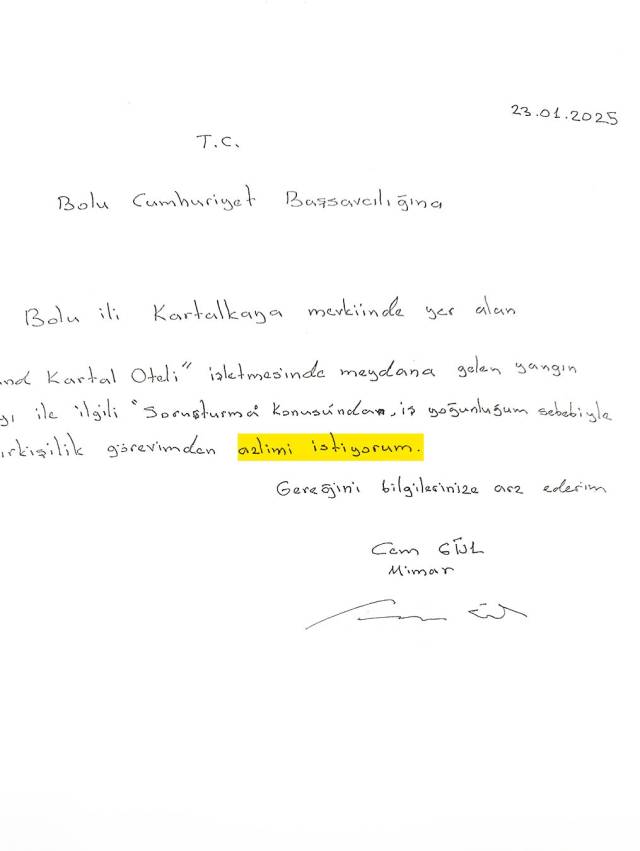 23.01.2025
T.C.
Bolu Cumhuriyet Başsavcılığına
Bolu ili Kartalkaya mevkiinde yer alan
nd Kartal Oteli" işletmesinde meydana gelen yangın
yı ile ilgili "Soruşturma Konusundan, iş yoğunluğum sebebiyle
irkişilik görevimden azlimi istiyorum.
Gereğini bilgilerinize arz ederim
Cem GÜL
Mimar